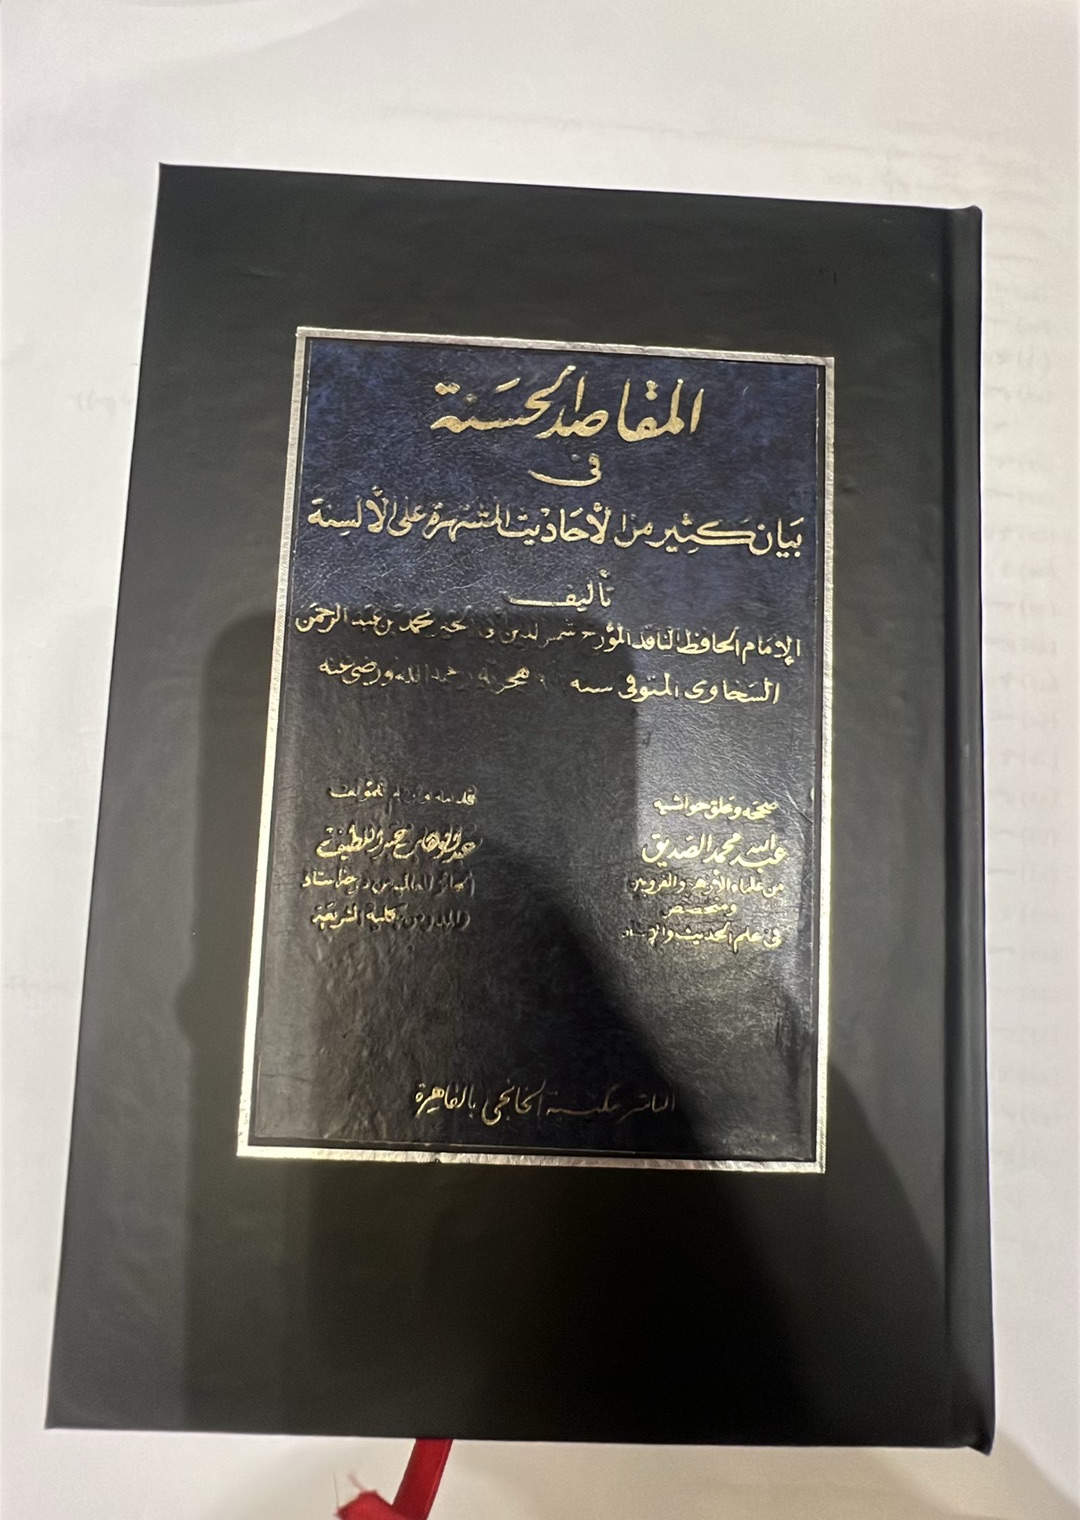 المقاصد الحسنة
فى
بيان كثير من الأحاديث المشتهرة على الألسنة
تأليف
الإمام الحافظ الناقد المؤرخ شمس الدين أبي الخير محمد بن عبد الرحمن
السخاوى المتوفى سنة هجرية رحمه الله ورضى عنه
صححه وعلق حواشيه
عبد الله محمد الصديق
من علماء الأزهر والقرويين
ومتخصص
فى علم الحديث والإسناد
قدمه وترجم للمؤلف
عبد الوهاب عبد اللطيف
من درجة أستاذ
والمدرس بكلية الشريعة
الناشر مكتبة الخانجى بالقاهرة